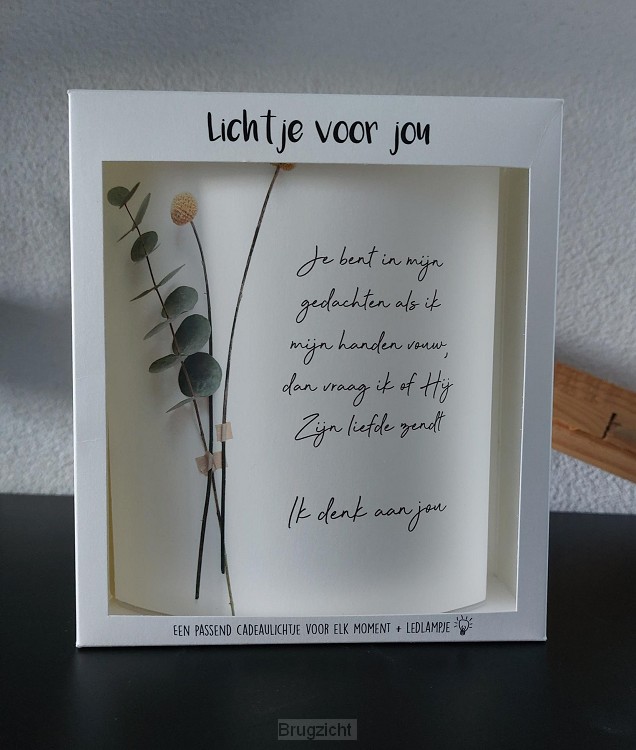 Lichtje voor jou
Je bent in mijn
gedachten als ik
mijn handen vouw,
dan vraag ik of Hij
Zijn liefde zendt
Ik denk aan jou
EEN PASSEND CADEAULICHTJE VOOR ELK MOMENT + LEDLAMPJE
Brugzicht